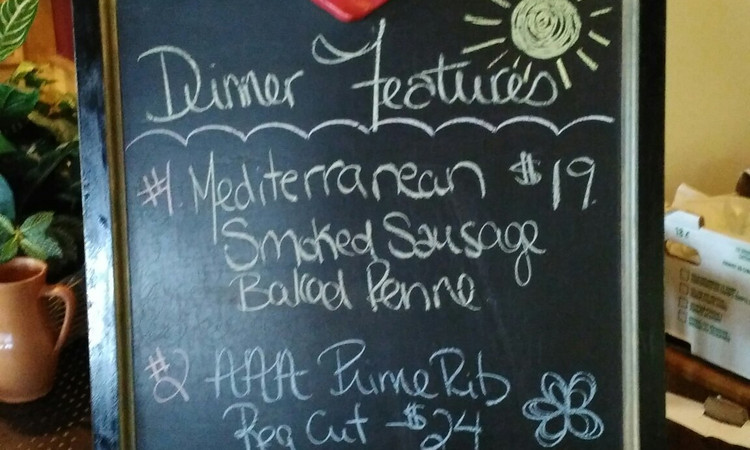 Dinner Features
#1 Mediterranean $19
Smoked Sausage
Baked Penne
#2 AAA Prime Rib
Reg Cut - $24
18¢